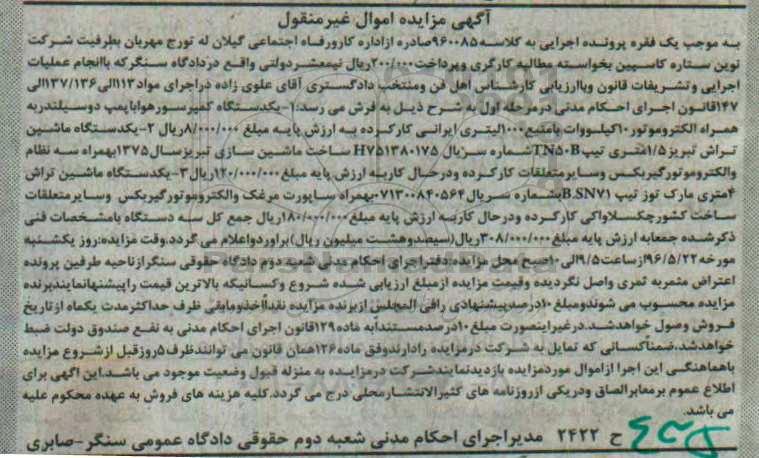 آگهی مزایده اموال غیرمنقول
به موجب یک فقره پرونده اجرایی به کلاسه ۹۶۰۰۸۵صادره ازاداره کارورفاه اجتماعی گیلان له تورج مهربان بطرفیت شرکت
نوین ستاره کاسپین بخواسته مطالبه کارگری وپرداخت۲۰۰/۰۰۰ریال نیمعشردولتی واقع دردادگاه سنگرکه باانجام عملیات
اجرایی وتشریفات قانون وباارزیابی کارشناس اهل فن ومنتخب دادگستری آقای علوی زاده دراجرای مواد۱۱۳الی۱۳۷/۱۳۶الی
۱۴۷قانون اجرای احکام مدنی درمرحله اول به شرح ذیل به فرش می رسد:۱-یکدستگاه کمپرسورهوابایمپ دوسیلندربه
همراه الکتروموتور۱۰کیلووات بامنبع۱۰۰۰لیتری ایرانی کارکرده به ارزش پایه مبلغ ۸/۰۰۰/۰۰۰ریال ۲-یکدستگاه ماشین
تراش تبریز۱/۵متری تیپTN۵۰Bشماره سریال H۷۵۱۳۸۰۱۷۵ ساخت ماشین سازی تبریزسال۱۳۷۵بهمراه سه نظام
والکتروموتورگیربکس وسایرمتعلقات کارکرده ودرحال کاربه ارزش پایه مبلغ۱۲۰/۰۰۰/۰۰۰ریال۳-یکدستگاه ماشین تراش
۴متری مارک توز تیپ B.SN۷۱بشماره سریال۰۷۱۳۰۰۸۴۰۵۶۴بهمراه ساپورت مرغک والکتروموتورگیربکس وسایرمتعلقات
ساخت کشورچکسلاواکی کارکرده ودرحال کاربه ارزش پایه مبلغ۱۸۰/۰۰۰/۰۰۰ریال جمع کل سه دستگاه بامشخصات فنی
ذکرشده جمعابه ارزش پایه مبلغ۳۰۸/۰۰۰/۰۰۰ریال(سیصدوهشت میلیون ریال)براوردواعلام می گردد.وقت مزایده:روز یکشنبه
مورخه۹۶/۵/۲۲ازساعت۹/۵الی۱۰صبح محل مزایده:دفتراجرای احکام مدنی شعبه دوم دادگاه حقوقی سنگرازناحیه طرفین پرونده
اعتراض مثمربه ثمری واصل نگردیده وقیمت مزایده ازمبلغ ارزیابی شده شروع وکسانیکه بالاترین قیمت راپیشنهانمایندبرنده
مزایده محسوب می شوندومبلغ۱۰درصدپیشنهادی رافی المجلس ازبرنده مزایده نقدااخذومابقی ظرف حداکثرمدت یکماه ازتاریخ
فروش وصول خواهدشد.درغیراینصورت مبلغ۱۰درصدمستندابه ماده۱۲۹قانون اجرای احکام مدنی به نفع صندوق دولت ضبط
خواهدشد.ضمناکسانی که تمایل به شرکت درمزایده رادارندوفق ماده۱۲۶همان قانون می توانندظرف۵روزقبل ازشروع مزایده
باهماهنگی این اجرا ازاموال موردمزایده بازدیدنمایندشرکت درمزایده به منزله قبول وضعیت موجود می باشد.این اگهی برای
اطلاع عموم برمعابرالصاق ودریکی ازروزنامه های کثیرالانتشارمحلی درج می گردد.کلیه هزینه های فروش به عهده محکوم علیه
می باشد.
ح ۲۴۲۲ مدیراجرای احکام مدنی شعبه دوم حقوقی دادگاه عمومی سنگر-صابری